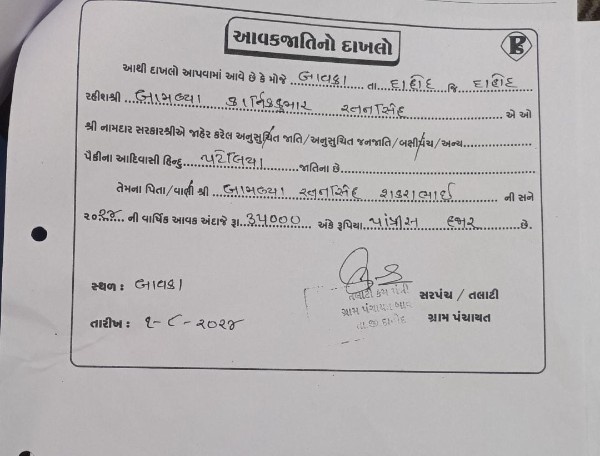 આવકજાતિનો દાખલો
આથી દાખલો આપવામાં આવે છે કે મોજે બાવકા તા. દાહોદ જિ. દાહોદ
રહીશશ્રી બામણ્યા કાર્તિકકુમાર રતનસિંહ એ ઓ
શ્રી નામદાર સરકારશ્રીએ જાહેર કરેલ અનુસુચિત જાતિ/અનુસુચિત જનજાતિ/બક્ષીપંચ/અન્ય
પૈકીના આદિવાસી હિન્દુ પટેલિયા જાતિના છે.
તેમના પિતા/વાલી શ્રી બામણ્યા રતનસિંહ શકરાભાઈ ની સને
૨૦૨૪ ની વાર્ષિક આવક અંદાજે રૂા. ૩૫૦૦૦ અંકે રૂપિયા પાંત્રીસ હજાર છે.
સ્થળ : બાવકા
તલાટી કમ મંત્રી
સરપંચ / તલાટી
ગ્રામ પંચાયત
તા.જી દાહોદ
ગ્રામ પંચાયત
તારીખ : ૧-૮-૨૦૨૪